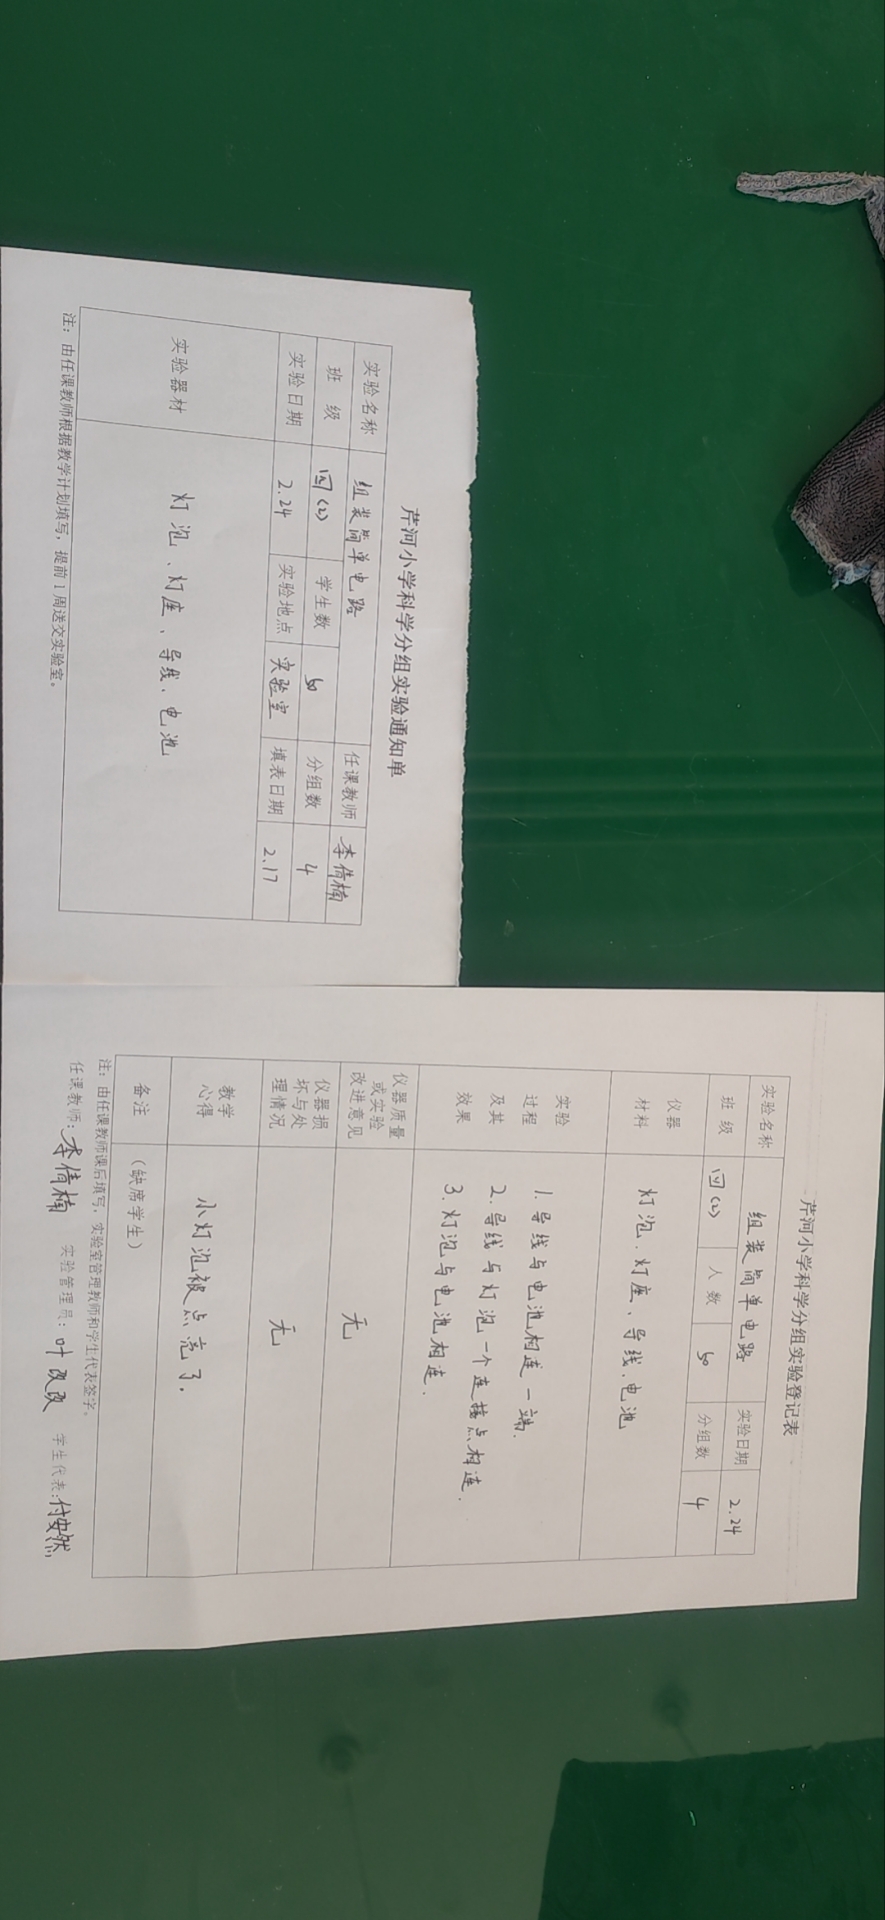 芹河小学科学分组实验通知单
实验名称 组装简单电路 任课教师 李倩楠
班 级 四(2) 学生数 50 分组数 4
实验日期 2.24 实验地点 实验室 填表日期 2.17
实验器材 灯泡、灯座、导线、电池
注：由任课教师根据教学计划填写，提前1周送交实验室。
芹河小学科学分组实验登记表
实验名称 组装简单电路 实验日期 2.24
班 级 四(2) 人 数 50 分组数 4
仪器
材料
灯泡、灯座、导线、电池
实验
过程
及其
效果
1.导线与电池相连一端.
2.导线与灯泡一个连接点相连.
3.灯泡与电池相连.
仪器质量
或实验
改进意见
无
仪器损
坏与处
理情况
无
教学
心得
小灯泡被点亮了.
备注 (缺席学生)
注：由任课教师课后填写，实验室管理教师和学生代表签字。
任课教师：李倩楠 实验管理员：叶改改 学生代表：付安然